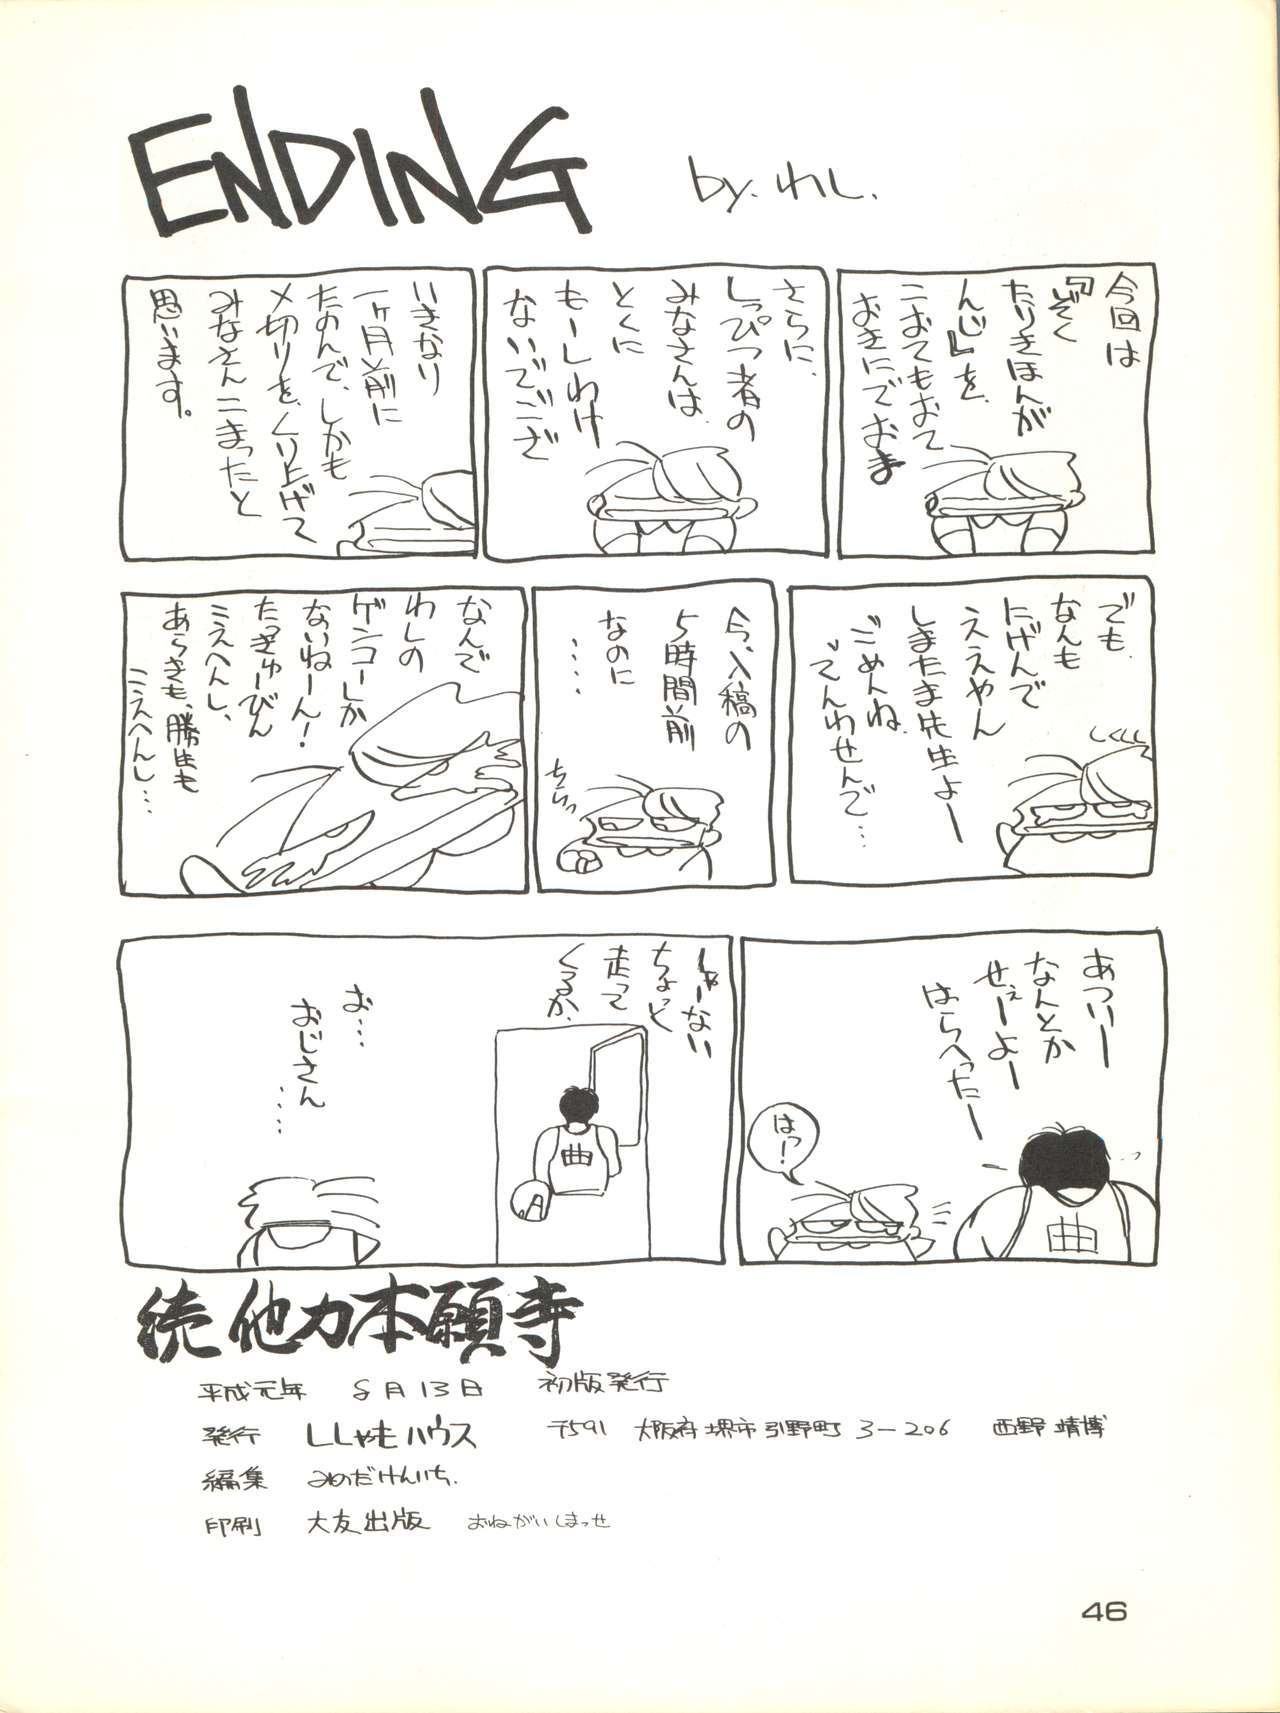 ENDING
by.わし.
今回は
『ぞく
たりきほんが
んじ』を、
こおてもおて
おきにでおま
さらに、
しっぴつ者の
みなさんは
とくに
もーしわけ
ないでござ
いきなり
一ヶ月前に
たのんで、しかも
〆切りを、くり上げて
みなさんこまったと
思います。
でも、
なんも
にげんで
ええやん
しまたま先生よー
ごめんね、
でんわせんで…
今、入稿の
5時間前
なのに
‥‥
ちらっ
なんで
わしの
ゲンコーしか
ないねーん!
たっきゅーびん
こえへんし、
あらきも、勝生も
こえへんし…
あついー
なんとか
せぇーよー
はらへったー
はっ!
曲
しゃーない
ちょっと
走って
くるか、
曲
お…
おじさん
‥‥
続 他力本願寺
平成元年 8月13日 初版発行
発行 ししゃもハウス 〒591 大阪府堺市引野町3-206 西野靖博
編集 みのだけんいち.
印刷 大友出版 おねがいしまっせ
46